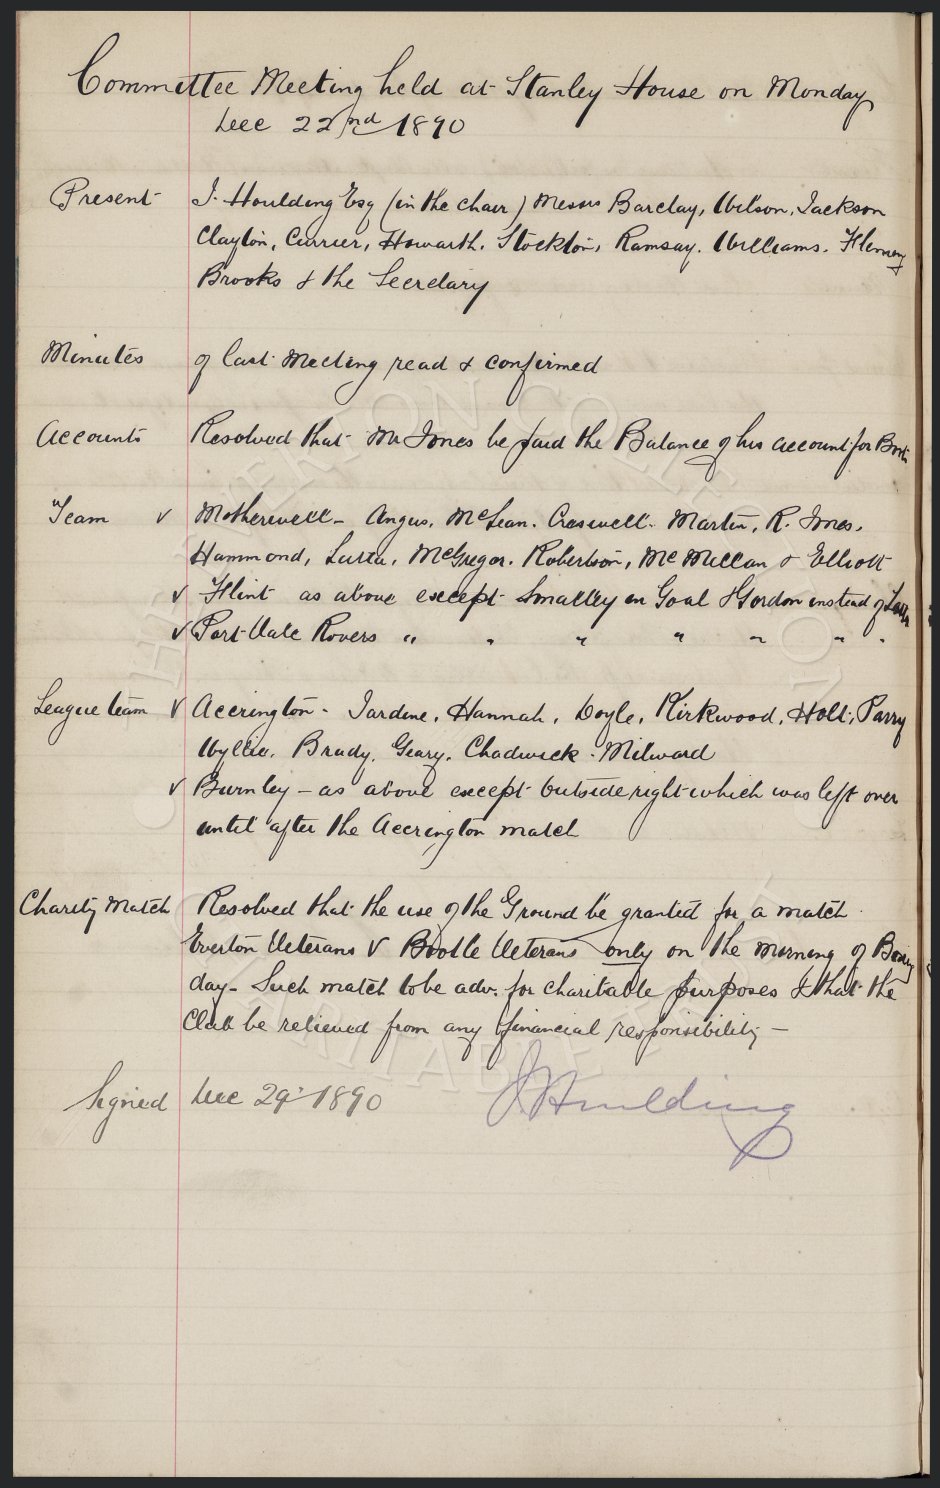 Committee Meeting held at Stanley House on Monday
Dec 22nd 1890
Present J. Houlding Esq (in the chair) Messrs Barclay, Wilson, Jackson
Clayton, Currier, Howarth. Stockton, Ramsay. Williams. Fleming
Brooks & the Secretary
Minutes of last Meeting read & confirmed
Accounts Resolved that Mr Jones be paid the Balance of his account for Boots
Team v Motherwell - Angus. McLean. Creswell. Martin, R. Jones.
Hammond, Lochhead, McGregor. Robertson, McMillan & Elliott
v Flint as above except Smalley in Goal & Gordon instead of
v Port Vale Rovers " " " " " " "
League team v Accrington - Jardine. Hannah, Doyle, Kirkwood, Holt, Parry
Wyllie. Brady. Geary. Chadwick. Milward
v Burnley - as above except Outside right which was left over
until after the Accrington match
Charity Match Resolved that the use of the Ground be granted for a match
Everton Veterans V Bootle Veterans only on the Morning of Boxing
day - Such match to be adv. for charitable purposes & that the
Club be relieved from any financial responsibility -
Signed Dec 29 1890 J Houlding